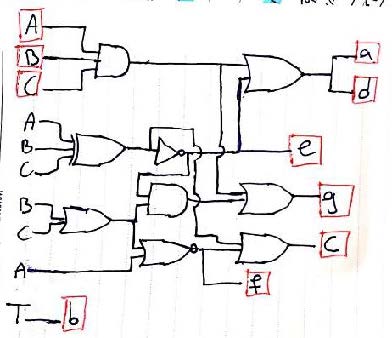 A
B
C
a
d
A
B
C
e
B
C
g
A
C
f
T b